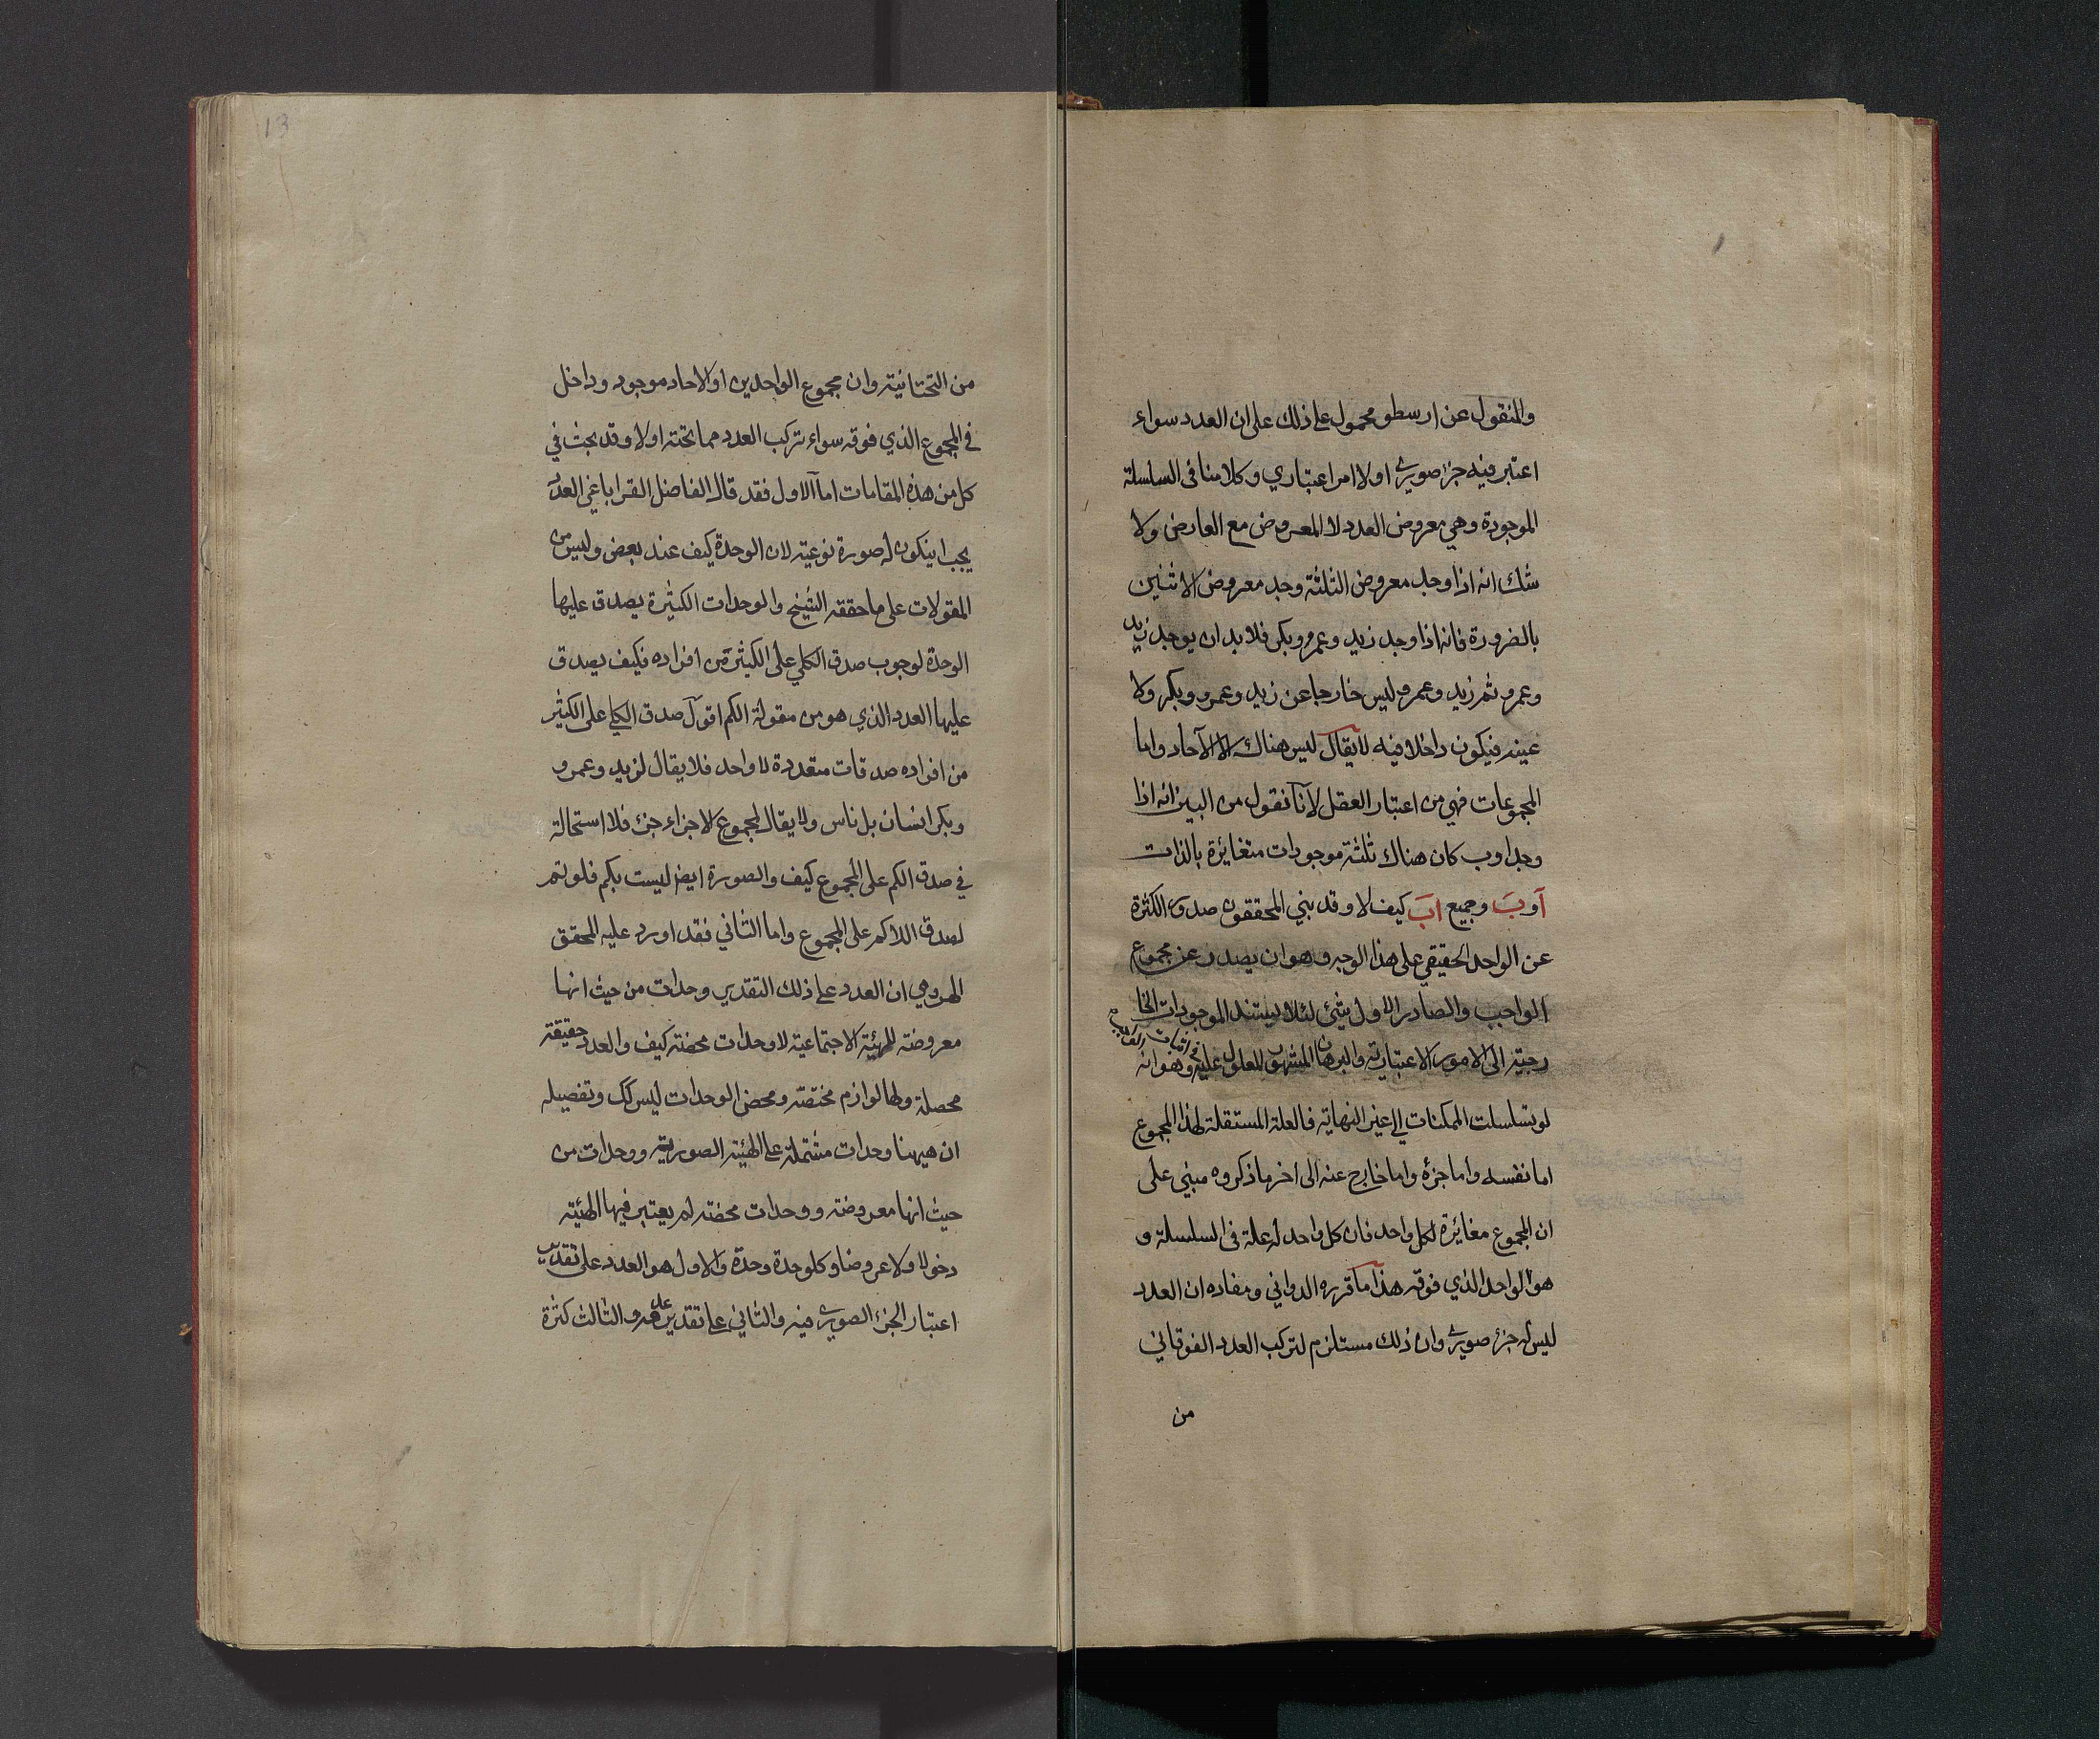 والمنقول عن ارسطو محمول على ذلك على ان العدد سواء
اعتبر فيه جزء صوري او لا امر اعتباري وكلامنا في السلسلة
الموجودة وهي معروض العدد لا المعروض مع العارض ولا
شك انه اذا وجد معروض الثلثة وجد معروض الاثنين
بالضرورة فانه اذا وجد زيد وعمرو وبكر فلا بد ان يوجد زيد
وعمرو ثم زيد وعمرو ليس خارجا عن زيد وعمرو وبكر ولا
عينه فيكون داخلا فيه لا يقال ليس هناك الا الآحاد واما
المجموعات فهي من اعتبار العقل لانا نقول من البين انه اذا
وجد ا وب كان هناك ثلثة موجودات متغايرة بالذات
آ وبَ وجميع اَبَ كيف لا وقد بني المحققون صدور الكثرة
عن الواحد الحقيقي على هذا الوجه وهو ان يصدر عن مجموع
الواجب والصادر الاول شئ لئلا يستند الموجودات الخا
رجية الى الامور الاعتبارية والبرهان المشهور المعول عليه في اثبات الواجب وهو انه
لو تسلسلت الممكنات الى غير النهاية فالعلة المستقلة لهذا المجموع
اما نفسه واما جزؤه واما خارج عنه الى اخر ما ذكروه مبني على
ان المجموع مغايرة لكل واحد فان كل واحد له علة في السلسلة و
هو الواحد الذي فوقه هذا ما قرره الدواني ومفاده ان العدد
ليس له جزء صوري وان ذلك مستلزم لتركب العدد الفوقاني
من
13
من التحتانية وان مجموع الواحدين او الاحاد موجود وداخل
في المجموع الذي فوقه سواء تركب العدد مما تحته او لا وقد بحث في
كل من هذه المقامات اما الاول فقد قال الفاضل القراباغي العدد
يجب ان يكون له صورة نوعية لان الوحدة كيف عند بعض وليس من
المقولات على ما حققه الشيخ والوحدات الكثيرة يصدق عليها
الوحدة لوجوب صدق الكلي على الكثيرة من افراده فكيف يصدق
عليها العدد الذي هو من مقولة الكم اقول صدق الكلي على الكثير
من افراده صدقات متعددة لا واحد فلا يقال لزيد وعمرو
وبكر انسان بل ناس ولا يقال لمجموع الاجزاء جزء فلا استحالة
في صدق الكم على المجموع كيف والصورة ايض ليست بكم فلو تم
لصدق اللاكم على المجموع واما الثاني فقد اورد عليه المحقق
الهروي ان العدد على ذلك التقدير وحدات من حيث انها
معروضة للهيئة الاجتماعية لا وحدات محضة كيف والعدد حقيقة
محصلة ولها لوازم مختصة ومحض الوحدات ليس كك وتفصيله
ان هيهنا وحدات مشتملة على الهيئة الصورية ووحدات من
حيث انها معروضة ووحدات محضة لم يعتبر فيها الهيئة
دخولا ولا عروضا وكل وحدة وحدة والاول هو العدد على تقدير
اعتبار الجزء الصوري فيه والثاني على تقدير عدمه والثالث كثرة